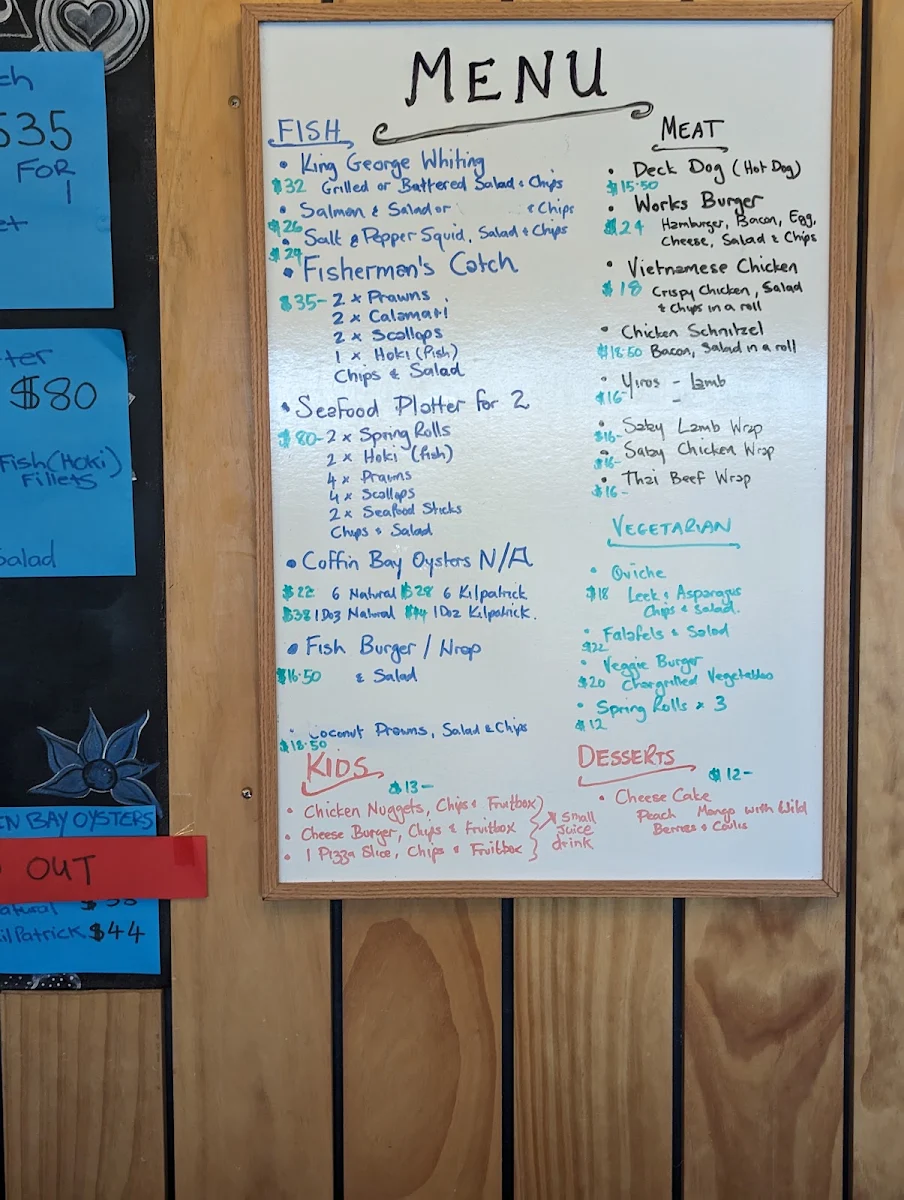 ch
535
FOR
1
et
ter
$80
Fish (Hoki)
Fillets
Salad
EN BAY OYSTERS
OUT
atural $38
ilPatrick $44
MENU
FISH
• King George Whiting
$32 Grilled or Battered Salad & Chips
• Salmon & Salad or & Chips
$26
• Salt & Pepper Squid, Salad & Chips
$24
• Fisherman's Catch
$35- 2 x Prawns
2 x Calamari
2 x Scallops
1 x Hoki (Fish)
Chips & Salad
• Seafood Platter for 2
$80- 2 x Spring Rolls
2 x Hoki (fish)
4 x Prawns
4 x Scallops
2 x Seafood Sticks
Chips & Salad
• Coffin Bay Oysters N/A
$22 6 Natural $28 6 Kilpatrick
$38 1 Doz Natural $44 1 Doz Kilpatrick.
• Fish Burger / Wrap
$16.50 & Salad
• Coconut Prawns, Salad & Chips
$18.50
KIDS
$13-
• Chicken Nuggets, Chips & Fruitbox
• Cheese Burger, Chips & Fruitbox
• 1 Pizza Slice, Chips & Fruitbox
Small
Juice
drink
MEAT
• Deck Dog (Hot Dog)
$15.50
• Works Burger
$24 Hamburger, Bacon, Egg,
Cheese, Salad & Chips
• Vietnamese Chicken
$18 Crispy Chicken, Salad
& Chips in a roll
• Chicken Schnitzel
$18.50 Bacon, Salad in a roll
• Yiros - Lamb
$16-
• Saby Lamb Wrap
$16-
• Saby Chicken Wrap
$16-
• Thai Beef Wrap
$16-
VEGETARIAN
• Quiche
$18 Leek & Asparagus
Chips & Salad.
• Falafels & Salad
$22
• Veggie Burger
$20 Chargrilled Vegetables
• Spring Rolls x 3
$12
DESSERTS
$12-
• Cheese Cake
Peach Mango with Wild
Berries & Coulis